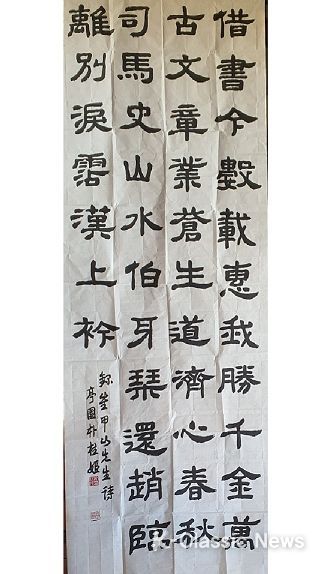 借書今數載惠我勝千金萬
古文章業蒼生道濟心春秋
司馬史山水伯牙琹還趙臨
離別淚霑漢上衿
山先生詩
亭園朴桂姬
Classic News